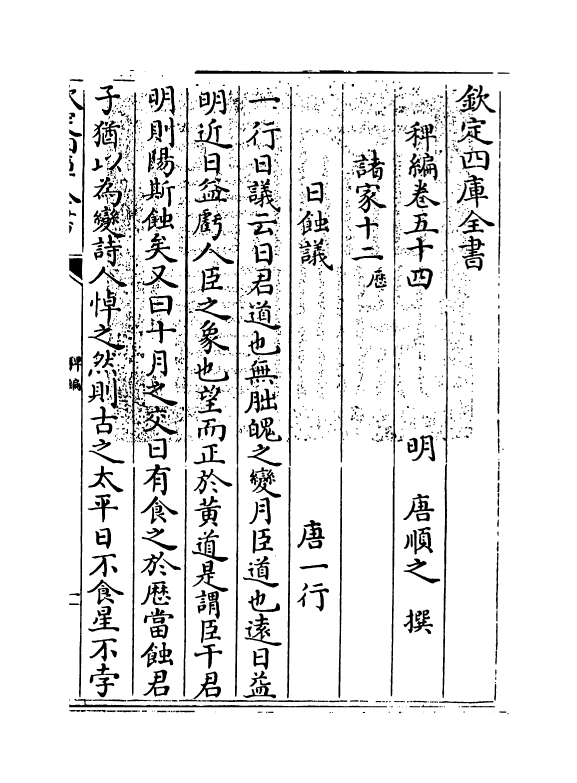 欽定四庫全書
稗編卷五十四　明　唐順之　撰
諸家十二厯
日蝕議　唐一行
一行日議云日君道也無朏魄之變月臣道也遠日益
明近日益虧人臣之象也望而正於黄道是謂臣干君
明則陽斯蝕矣又曰十月之交日有食之於厯當蝕君
子猶以為變詩人悼之然則古之太平日不食星不孛
稗編